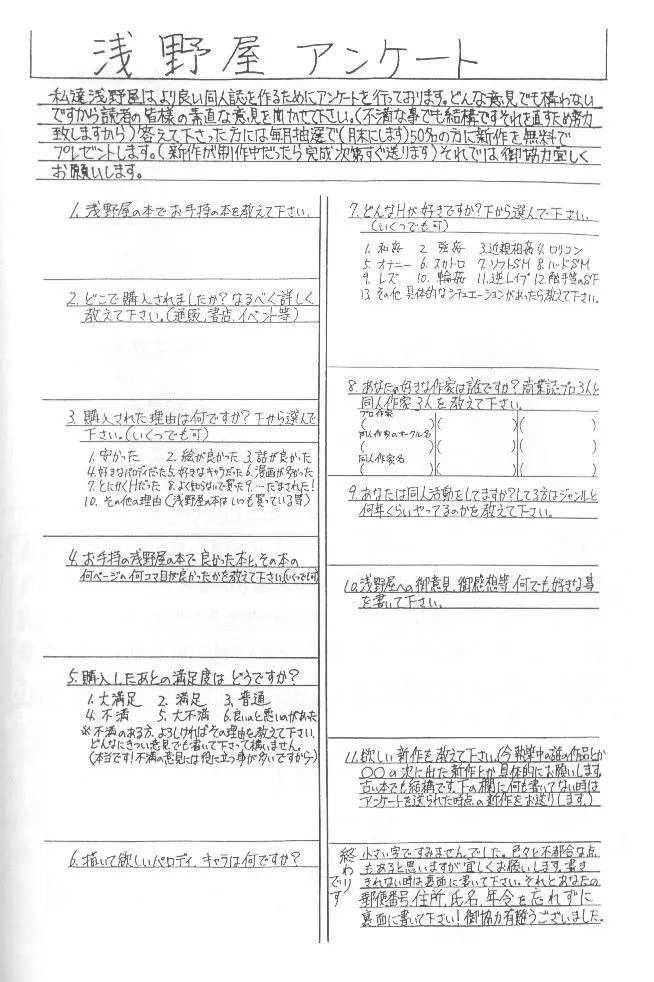 浅野屋 アンケート
私達浅野屋は、より良い同人誌を作るためにアンケートを行っております。どんな意見でも構わない
ですから読者の皆様の素直な意見を聞かせて下さい。(不満な事でも結構ですそれを直すため努力
致しますから)答えて下さった方には毎月抽選で(月末にします)50名の方に新作を無料で
プレゼントします。(新作が制作中だったら完成次第すぐ送ります)それでは、御協力宜しく
お願いします。
1. 浅野屋の本でお手持の本を教えて下さい.
2. どこで購入されましたか?なるべく詳しく
教えて下さい。(通販,書店,イベント等)
3. 購入された理由は何ですか?下から選んで
下さい。(いくつでも可)
1. 安かった 2. 絵が良かった 3. 話が良かった
4. 好きなパロディだった 5. 好きなキャラだった 6. 漫画が多かった
7. とにかくHだった 8. よく知らないで買った 9. …だまされた!
10. その他の理由(浅野屋の本はいつも買っている等)
4. お手持の浅野屋の本で良かった本と、その本の
何ページの何コマ目が良かったかを教えて下さい(いくつでも可)
5. 購入したあとの満足度はどうですか?
1. 大満足 2. 満足 3. 普通
4. 不満 5. 大不満 6. 良いのと悪いのがあった
※不満のある方、よろしければその理由を教えて下さい.
どんなにきつい意見でも書いて下さって構いません。
(本当です!不満の意見には役に立つ事が多いですから)
6. 描いて欲しいパロディ、キャラは何ですか?
7. どんなHが好きですか?下から選んで下さい.
(いくつでも可)
1. 和姦 2. 強姦 3. 近親相姦 4. ロリコン
5. オナニー 6. スカトロ 7. ソフトSM 8. ハードSM
9. レズ 10. 輪姦 11. 逆レイプ 12. 触手等のSF
13. その他 具体的なシチュエーションがあったら教えて下さい.
8. あなたの好きな作家は誰ですか?商業誌・プロ3人と
同人作家3人を教えて下さい。
プロ作家
( )( )( )
同人作家のサークル名
( )( )( )
同人作家名
( )( )( )
9. あなたは同人活動をしてますか?してる方はジャンルと
何年くらいやってるのかを教えて下さい。
10. 浅野屋への御意見、御感想等何でも好きな事
を書いて下さい.
11. 欲しい新作を教えて下さい.(今執筆中の話の作品とか
〇〇の次に出た新作とか具体的にお願いします.
古い本でも結構です.下の欄に何も書いてない時は
アンケートを送られた時点の新作をお送りします。)
終わりです
小さい字ですみませんでした。色々と不都合な点
もあると思いますが宜しくお願いします。書き
きれない時は裏面に書いて下さい。それとあなたの
郵便番号、住所、氏名、年令を忘れずに
裏面に書いて下さい!御協力有難うございました。